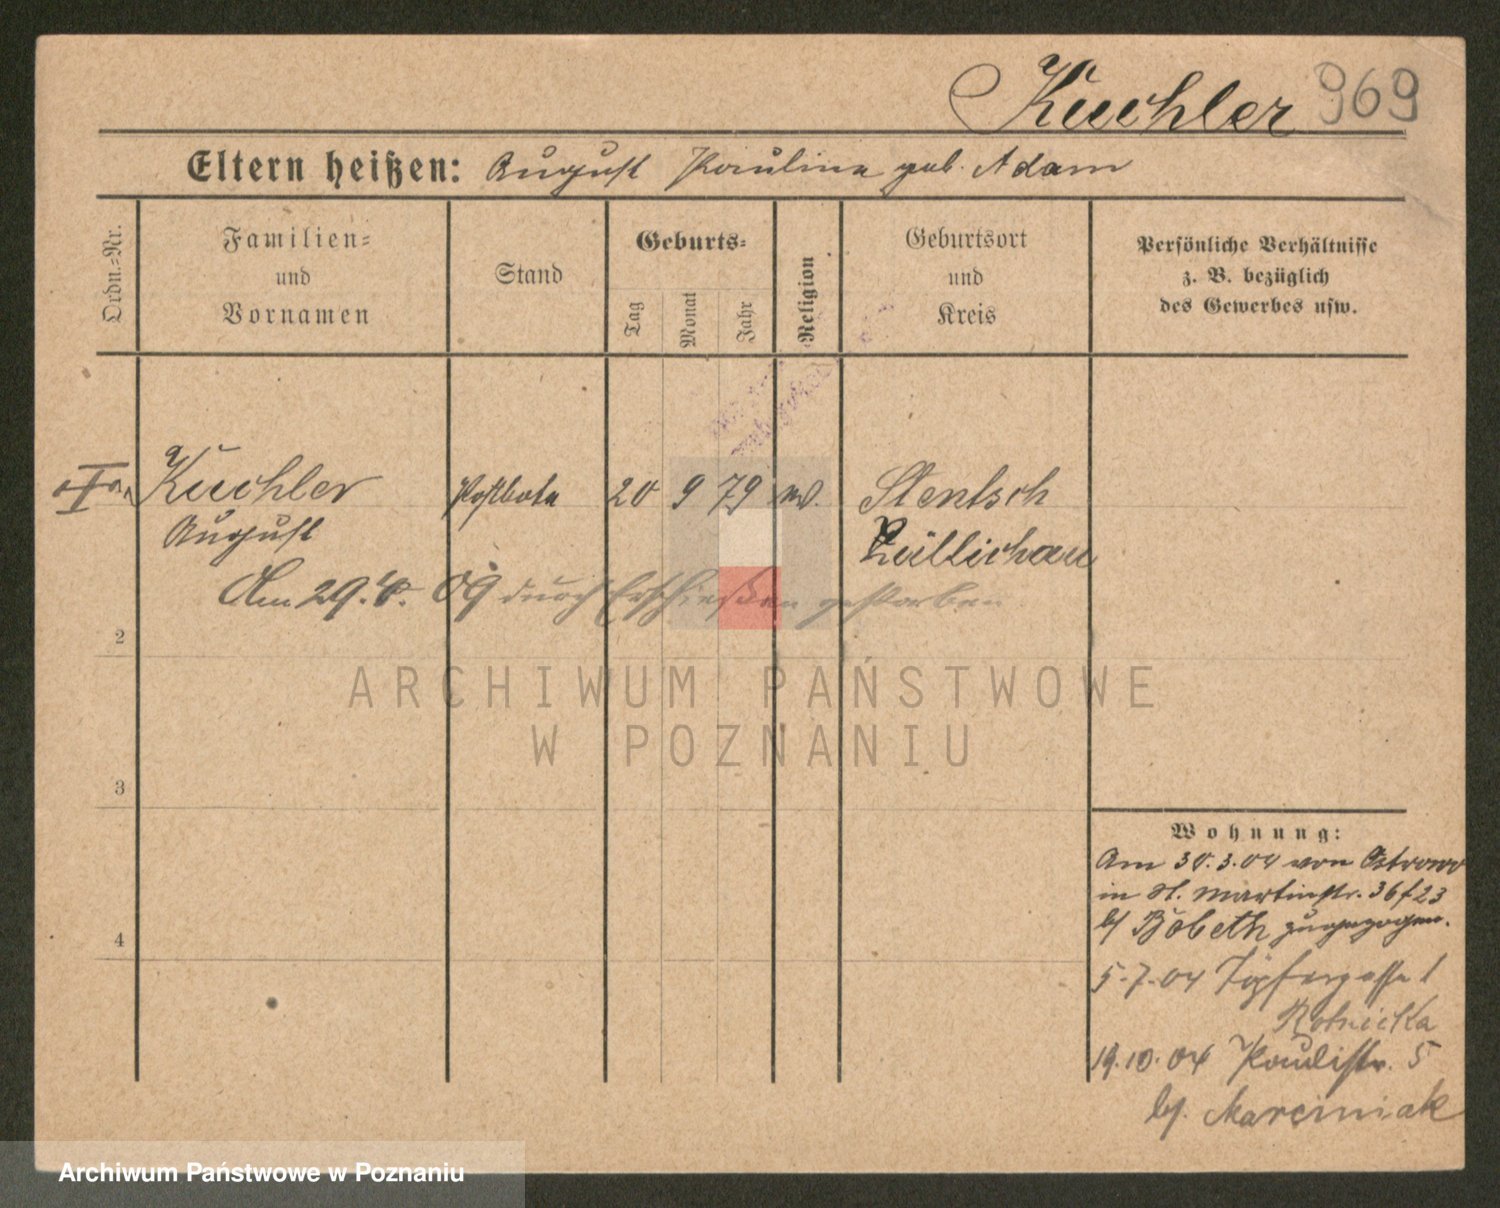 Kuchler 969
Eltern heißen: August Paulina geb. Adam
Ordn.-Nr.
Familien- und Vornamen
Stand
Geburts-
Tag
Monat
Jahr
Religion
Geburtsort und Kreis
Persönliche Verhältnisse z. B. bezüglich des Gewerbes usw.
Kuchler Postbote 20 9 79 ev. Stentsch
August Züllichau
Am 29. 09 durch Erschießen gestorben
2
3
4
Wohnung:
Am 30.3.04 von Ostrowo
in St. Martinstr. 36 f 23
bei Bobeth zugezogen.
5-7-04 Töpfergasse 1
Rotnicka
19.10.04 Paulistr. 5
bei Marciniak
ARCHIWUM PAŃSTWOWE
W POZNANIU
Archiwum Państwowe w Poznaniu